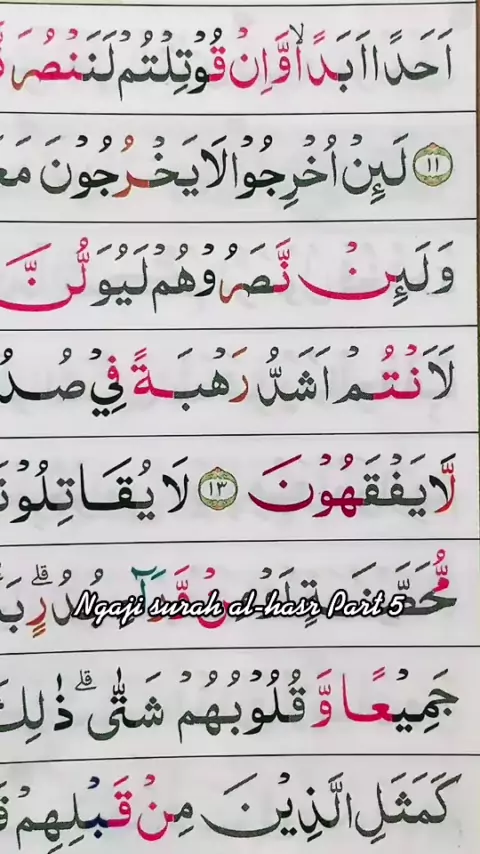 اَحَدًا اَبَدًاۙ وَّاِنْ قُوْتِلْتُمْ لَنَنْصُرَ
﴿١١﴾ لَىِٕنْ اُخْرِجُوْا لَا يَخْرُجُوْنَ مَعَ
وَلَىِٕنْ نَّصَرُوْهُمْ لَيُوَلُّنَّ
لَاَنْتُمْ اَشَدُّ رَهْبَةً فِيْ صُدُ
لَّا يَفْقَهُوْنَ ﴿١٣﴾ لَا يُقَاتِلُوْنَ
مُّحَصَّنَةٍ مِنْ وَّرَاۤءِ جُدُرٍۗ بَ
Ngaji surah al-hasr Part 5
جَمِيْعًا وَّقُلُوْبُهُمْ شَتّٰىۗ ذٰلِكَ
كَمَثَلِ الَّذِيْنَ مِنْ قَبْلِهِمْ قَ